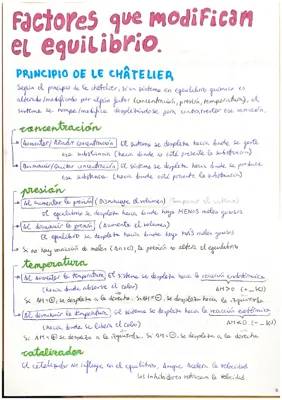 Factores que modifican
el equilibrio.
PRINCIPIO DE LE CHÂTELIER
Según el principio de le châtelier, si un sistema en equilibrio químico es
alterado/modificado por algún factor (concentración, presión, temperatura), el
sistema se desplazándose para contrarrestar esa variación.
concentración
Aumentar/Añadir concentración El sistema se desplaza hacia donde se gaste
esa substancia (hacia donde no esté presente la substancia)
Disminuir/Quitar concentración El sistema se desplaza hacia donde se produce
esa substancia (hacia donde esté presente la substancia)
presión
Al aumentar la presión (Disminuye el volumen)
El equilibrio se desplaza hacia donde haya MENOS moles gaseosos
Al disminuir la presión (Aumenta el volumen)
El equilibrio se desplaza hacia donde haya MÁS moles gaseosos
Si no hay variación de moles (Δn=0), la presión no altera el equilibrio
temperatura
Al aumentar la temperatura, el sistema se desplaza hacia la reacción endotérmica
(hacia donde absorbe el calor) ΔH>0
Si ΔH=⊕, se desplaza a la derecha. Si ΔH=⊖, se desplaza hacia la izquierda.
Al disminuir la temperatura, el sistema se desplaza hacia la reacción exotérmica
(hacia donde se libera el calor) ΔH<0
Si ΔH=⊕, se desplaza a la izquierda. Si ΔH=⊖, se desplaza a la derecha
catalizador
El catalizador no influye en el equilibrio, aunque acelera la velocidad
los inhibidores retrasan la velocidad.